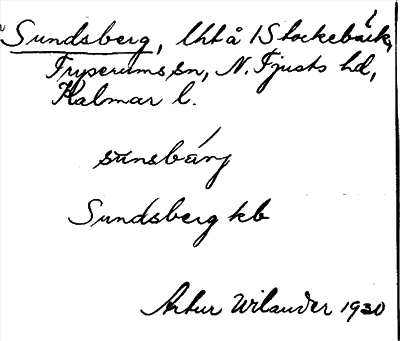 Sundsberg, lht å 1 Stockebäck,
Fryserums sn, N. Tjusts hd,
Kalmar l.
sunsbärj
Sundsberg kb
Artur Wilander 1930